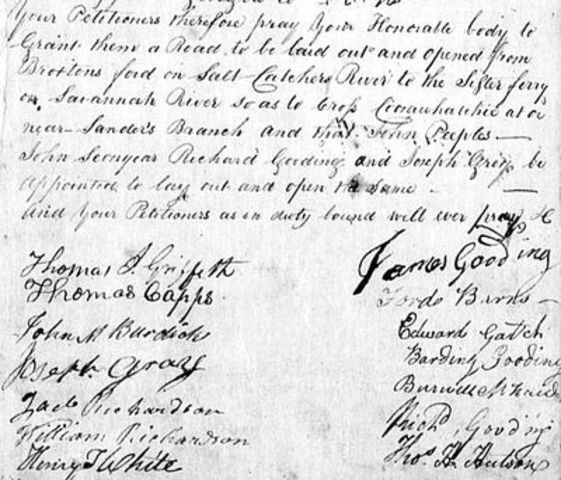 Your Petitioners therefore pray Your Honorable body to
Grant them a Road, to be laid out and opened from
Broxtons ford on Salt Catchers River to the Sister ferry
on Savannah River so as to Cross Coosawhatchie at or
near Sander's Branch and that John Peeples
John Richard Gooding and Joseph be
appointed to lay out and open the same
and Your Petitioners as in duty bound will ever pray &c
Thomas J. Griffeth
Thomas Capps
John M Burdick
Joseph Gray
Richardson
William Richardson
Henry J White
James Gooding
Barns
Edward Gatch
Gooding
Richd. Gooding
Thos. H. Hutson